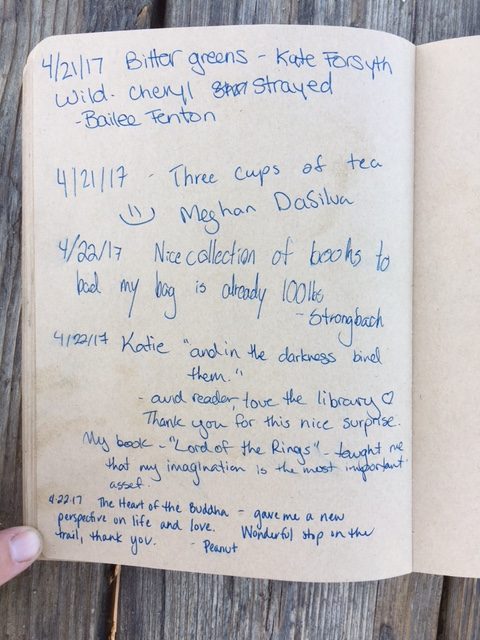 4/21/17 Bitter greens - Kate Forsyth
Wild - Cheryl Strayed
- Bailee Fenton
4/21/17 - Three cups of tea
Meghan DaSilva
4/22/17 Nice collection of books to
bad my bag is already 100lbs
- Strongback
4/22/17 Katie "and in the darkness bind
them."
- avid reader, love the library ♡
Thank you for this nice surprise.
My book - "Lord of the Rings" - taught me
that my imagination is the most important
asset.
4.22.17 The Heart of the Buddha - gave me a new
perspective on life and love. Wonderful stop on the
trail, thank you. - Peanut